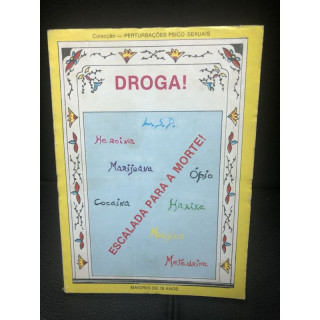 Colecção — PERTURBAÇÕES PSICO SEXUAIS
DROGA!
L.S.D.
Heroina
Marijuana
Ópio
ESCALADA PARA A MORTE!
Cocaína
Haxixe
Metadeina
MAIORES DE 18 ANOS